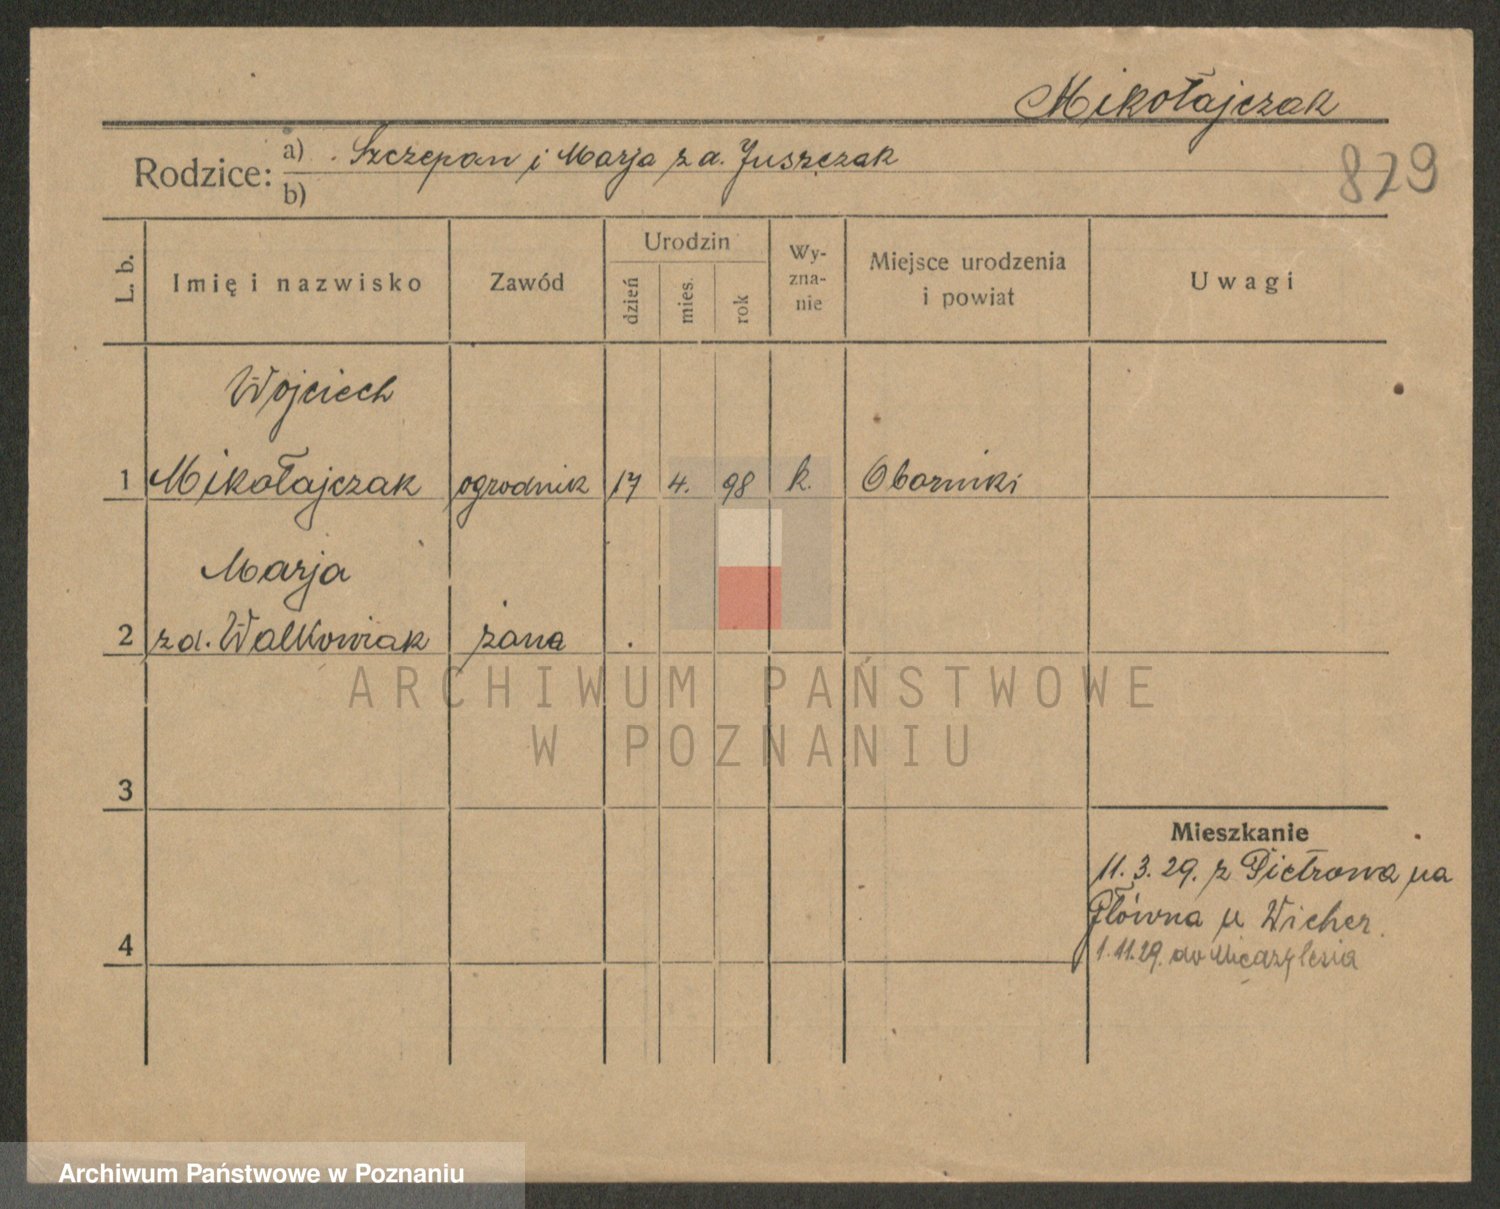 Mikołajczak
829
Rodzice: a) Szczepan i Marja z d. Juszczak
b)
L. b.
Imię i nazwisko
Zawód
Urodzin
dzień
mies.
rok
Wy-
zna-
nie
Miejsce urodzenia
i powiat
Uwagi
Wojciech
1 Mikołajczak ogrodnik 17 4. 98 k. Oborniki
Marja
2 z d. Walkowiak żona
ARCHIWUM PAŃSTWOWE
W POZNANIU
3
Mieszkanie
11. 3. 29. z Piotrowa na
Główna u Wicher.
4
1. 11. 29. do
Archiwum Państwowe w Poznaniu